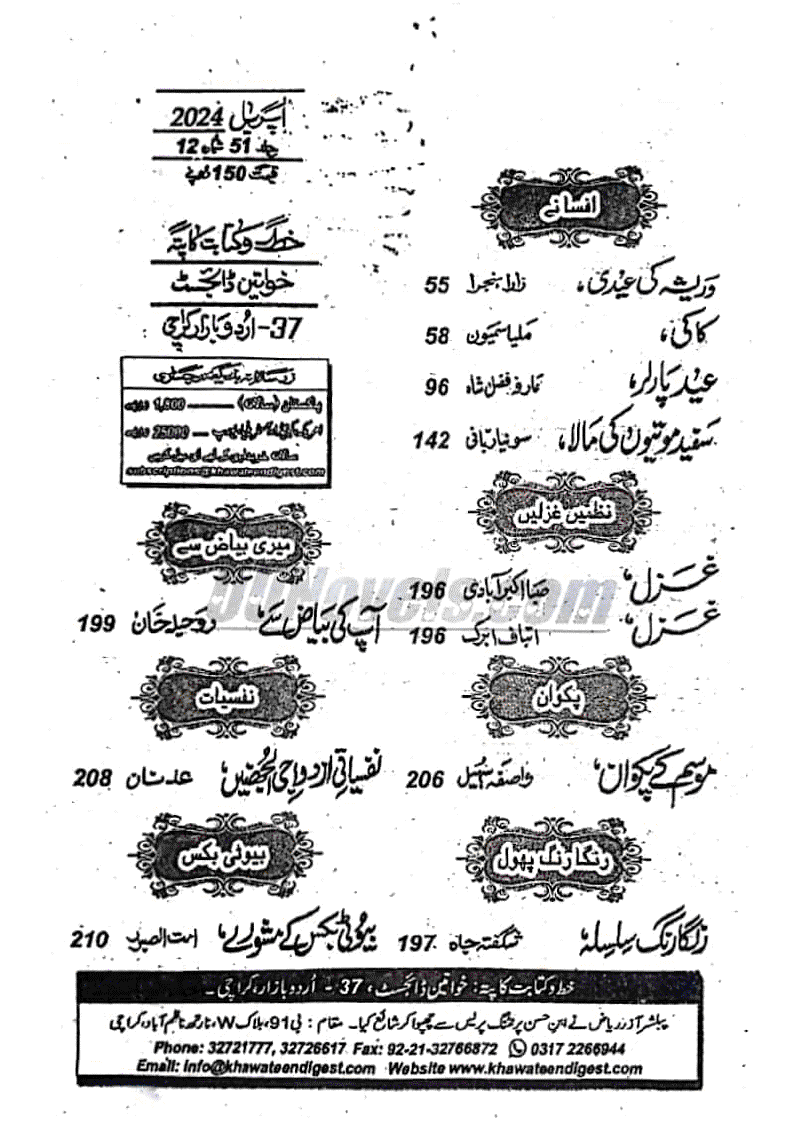 اپریل 2024
جلد 51 شمارہ 12
قیمت 150 روپے
خط و کتابت کا پتہ
خواتین ڈائجسٹ
37- اُردو بازار کراچی
پاکستان (سالانہ) ——— 1,800 روپے
25000 روپے
subscriptions@khawateendigest.com
افسانے
وریشہ کی عیدی، زارا ہنجرا 55
کاکی، 58
عید پارلر، فضل شاہ 96
سفید موتیوں کی مالا، سونیا ربانی 142
نظمیں غزلیں
غزل، صبا اکبر آبادی 196
غزل، اتباف ابرک 196
میری بیاض سے
آپ کی بیاض سے، خان 199
نفسیات
نفسیاتی ازدواجی الجھنیں، عدنان 208
پکوان
موسم کے پکوان، واصفہ سہیل 206
بیوٹی بکس
بیوٹی بکس کے مشورے، امت الصبور 210
رنگا رنگ پھول
رنگارنگ سلسلہ، شگفتہ جاہ 197
خط و کتابت کا پتہ: خواتین ڈائجسٹ، 37 - اُردو بازار، کراچی -
پبلشر آزر ریاض نے ابنِ حسن پرنٹنگ پریس سے چھپوا کر شائع کیا۔ مقام: بی 91، بلاک W، نارتھ ناظم آباد، کراچی
Phone: 32721777, 32726617 Fax: 92-21-32766872 0317 2266944
Email: info@khawateendigest.com Website www.khawateendigest.com